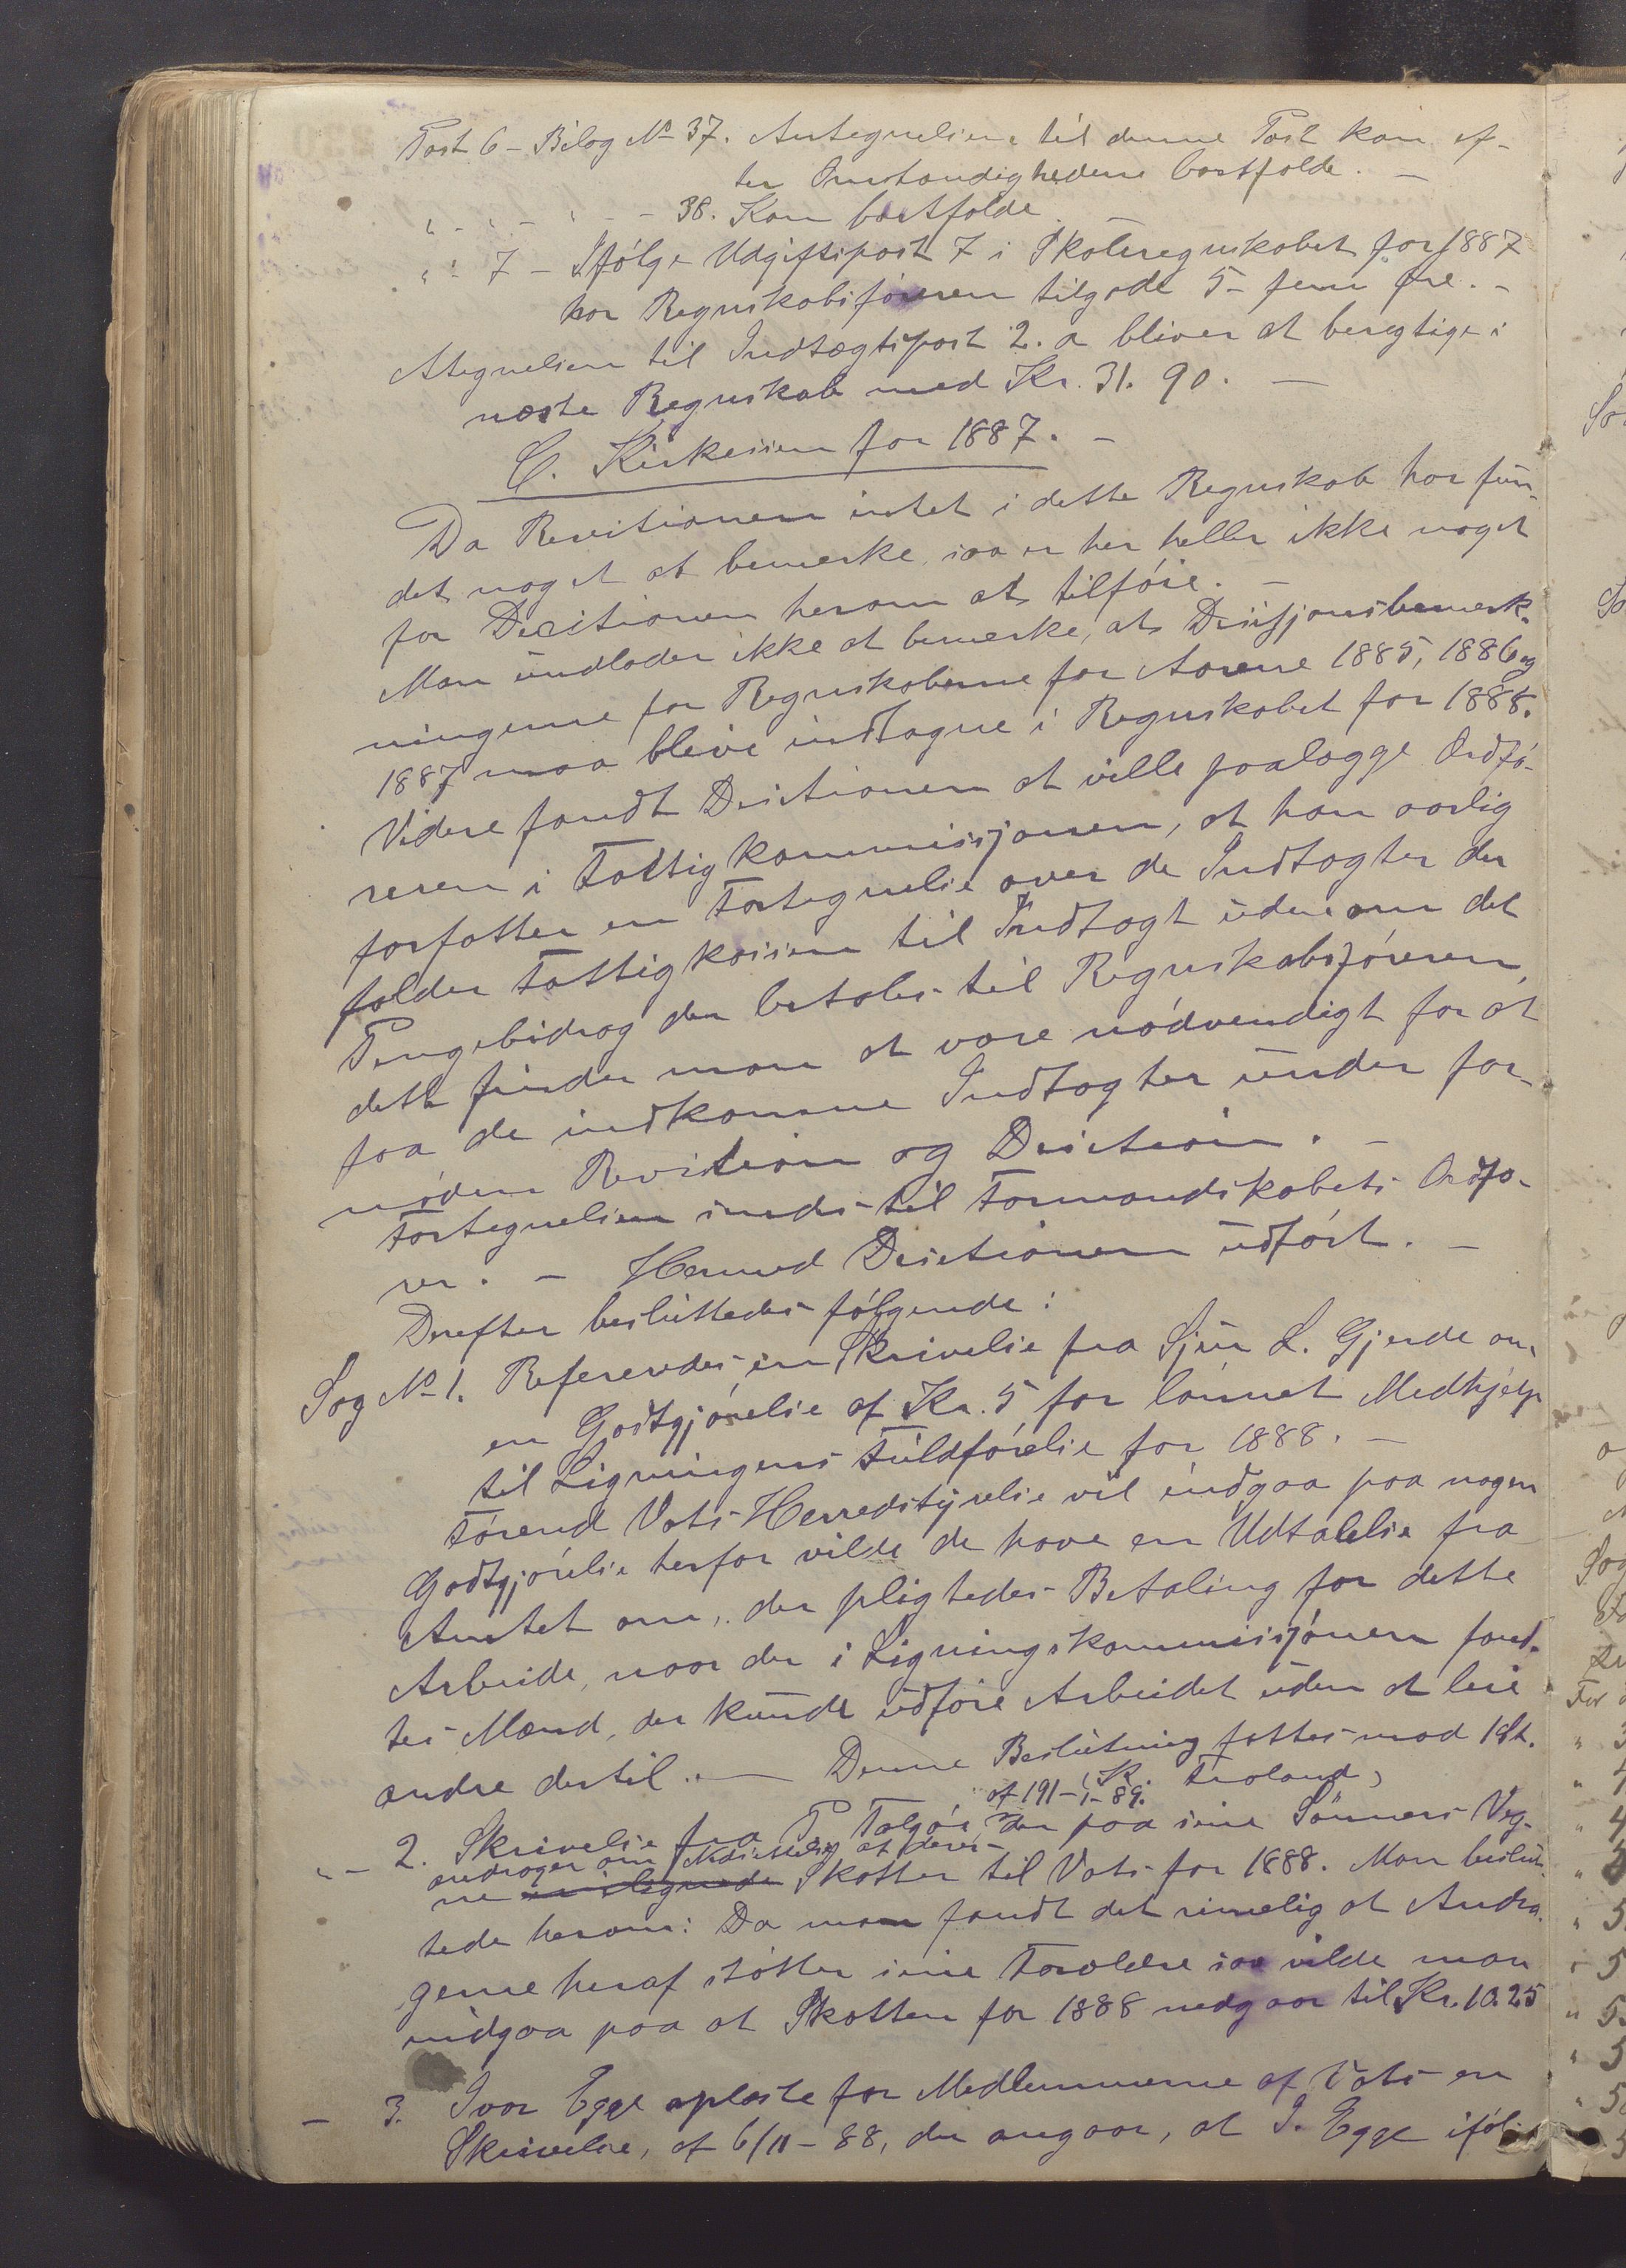 Post 6 - Bilog No 37. Antegnelsen til denne Post kan ef-
ter Omstændighederne bortfalde. -
" - " - " - - 38. Kan bortfalde. -
" - 7 - Ifølge Udgiftspost 7 i Skoleregnskabet for 1887
har Regnskabsføreren tilgode 5 - fem Øre. -
Ategnelsen til Indtægtspost 2. a bliver at beregtige i
næste Regnskab med Kr. 31. 90. -
C. Kirkessen for 1887. -
Da Revitionen intet i dette Regnskab har fun-
det noget at bemærke, saa er her heller ikke noget
for Decitionen herom at tilføie. -
Man undlader ikke at bemerke, at Desisjonsbemærk-
ningerne for Regnskaberne for Aarene 1885, 1886 og
1887 maa blive indtagne i Regnskabet for 1888.
Videre fandt Desitionen at ville paalægge Ordfø-
reren i Fattigkommissjonen, at han aarlig
forfatter en Fortegnelse over de Indtægter der
falder Fattigkassen til Indtægt udenom det
Pengebidrag der betales til Regnskabsføreren,
dette finder man at være nødvendigt for at
faa de indkomne Indtægter under for-
nøden Revition og Desition. -
Fortegnelsen sendes til Formandskabets Ordfø-
rer. - Hermed Desitionen udført. -
Derefter besluttedes følgende:
Sag No 1. Refereredes en Skrivelse fra Sjur L. Gjerde om
en Godtgjørelse af Kr. 5 for lønnet Medhjelp
til Ligningens Fuldførelse for 1888. -
Førend Vats Herredstyrelse vil indgaa paa nogen
Godtgjørelse herfor vilde de have en Udtalelse fra
Amtet om, der pligtedes Betaling for dette
Arbeide, naar der i Ligningskommissjonen fand-
tes Mænd, der kunde udføre Arbeidet uden at leie
andre dertil. - Denne Beslutning fattes mod 1 St.
(K. Froland)
" - 2. Skrivelse fra P. Talgøe af 19/1 - 89. der paa sine Sønners Veg-
ne andrager om Nedsettelse af deres Skatter til Vats for 1888. Man beslut-
tede herom: Da man fandt det rimelig at Andra-
gerne heraf støtter sine Forældre saa vilde man
indgaa paa at Skatten for 1888 nedgaar til Kr. 10.25
- 3. Ivar Egge oplæste for Medlemmerne af Vats en
Skrivelse, af 6/11 - 88, der angaar, at I. Egge ifølge